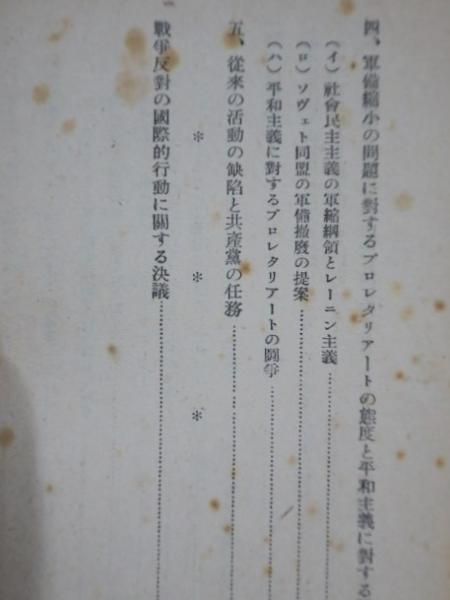 四、軍備縮小の問題に對するプロレタリアートの態度と平和主義に對する
(イ)社會民主主義の軍縮綱領とレーニン主義…………
(ロ)ソヴェト同盟の軍備撤廢の提案…………
(ハ)平和主義に對するプロレタリアートの鬪爭…………
五、從來の活動の缺陷と共產黨の任務…………
* * *
戰爭反對の國際的行動に關する決議…………